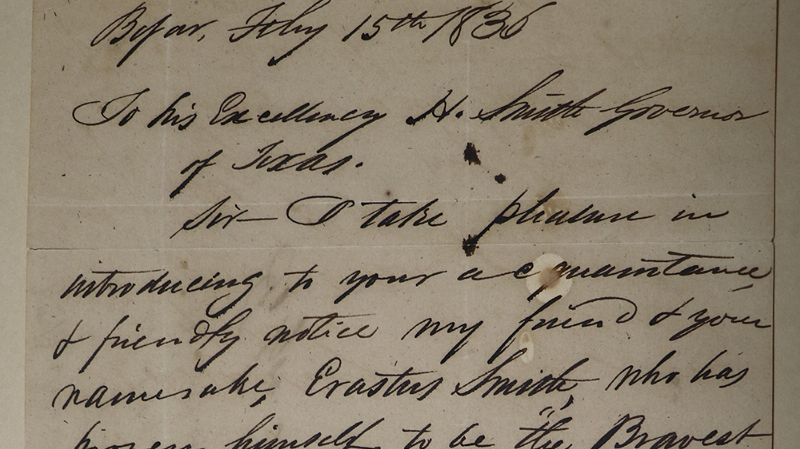 Bejar, Feby 15th 1836
To his Excellency H. Smith Governor
of Texas.
Sir I take pleasure in
introducing to your acquaintance,
& friendly notice my friend & your
namesake, Erastus Smith, who has
proven himself to be "the Bravest